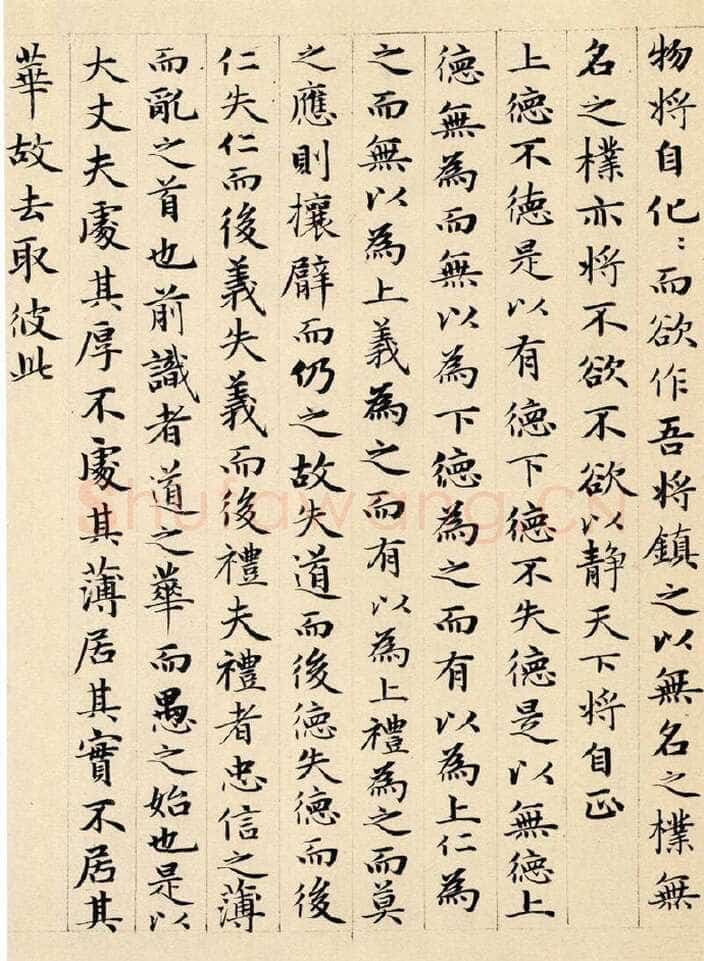 物将自化：而欲作吾将鎮之以無名之樸無
名之樸亦将不欲不欲以静天下将自正
上德不德是以有德下德不失德是以無德上
德無為而無以為下德為之而有以為上仁為
之而無以為上義為之而有以為上禮為之而莫
之應則攘臂而仍之故失道而後德失德而後
仁失仁而後義失義而後禮夫禮者忠信之薄
而亂之首也前識者道之華而愚之始也是以
大丈夫處其厚不處其薄居其實不居其
華故去取彼此
Shufawang.CN